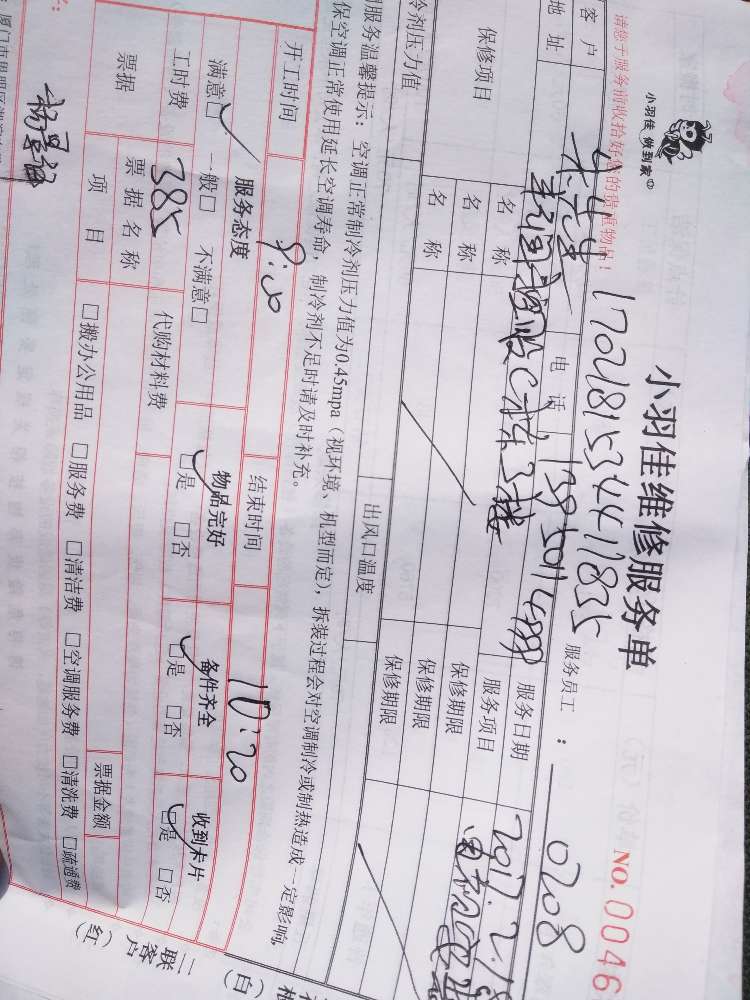 小羽佳 做到家
小羽佳维修服务单
NO.0046
请您于服务前收拾好您的贵重物品！
17021815344117835
服务员工：
0208
客户
电话
服务日期
2017.2.18
地址
C栋3楼
服务项目
保修项目
名称
保修期限
名称
保修期限
名称
保修期限
冷剂压力值
出风口温度
服务温馨提示：空调正常制冷剂压力值为0.45mpa（视环境、机型而定），拆装过程会对空调制冷或制热造成一定影响，
保空调正常使用延长空调寿命，制冷剂不足时请及时补充。
开工时间
结束时间
10:20
服务态度
物品完好
备件齐全
收到卡片
满意□ 一般□ 不满意□
□是 □否
□是 □否
□是 □否
工时费
385
代购材料费
票据
票据名称
票据金额
项目
□搬办公用品 □服务费 □清洁费 □空调服务费 □清洗费 □疏通费
二联客户（红）
（白）